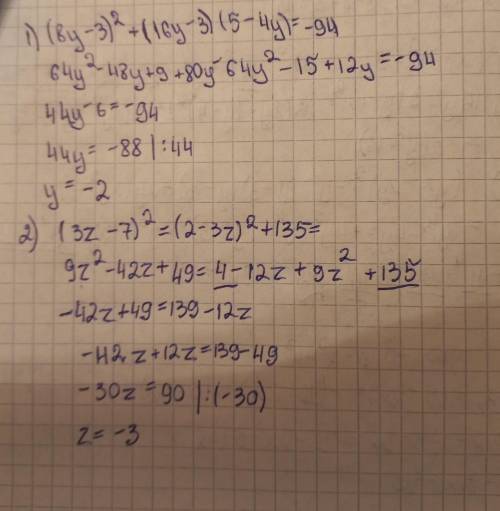 1) (8y-3)² + (16y-3)(5-4y)=-94
64y²-48y+9+80y-64y²-15+12y=-94
44y-6=-94
44y=-88|:44
y=-2
2) (3z-7)²=(2-3z)²+135=
9z²-42z+49=4-12z+9z²+135
-42z+49=139-12z
-42z+12z=139-49
-30z=90|:(-30)
z=-3